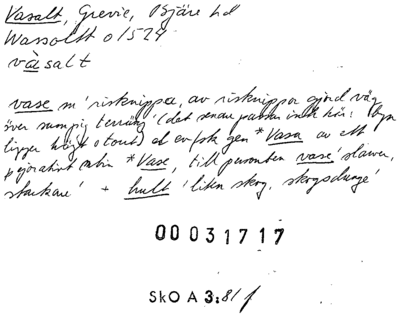 Vasalt, Grevie, Bjäre hd
Wassollt o 1524
vàsalt
vase m 'risknippa, av risknippor gjord väg
över sumpig terräng' (det senare passar inte här: byn
ligger högt o torrt) el ev fsk gen *Vasa av ett
pejorativt mbin *Vase, till personben vase 'slarver,
stackare' + hult 'liten skog, skogsdunge'
00031717
SkO A 3:81 f